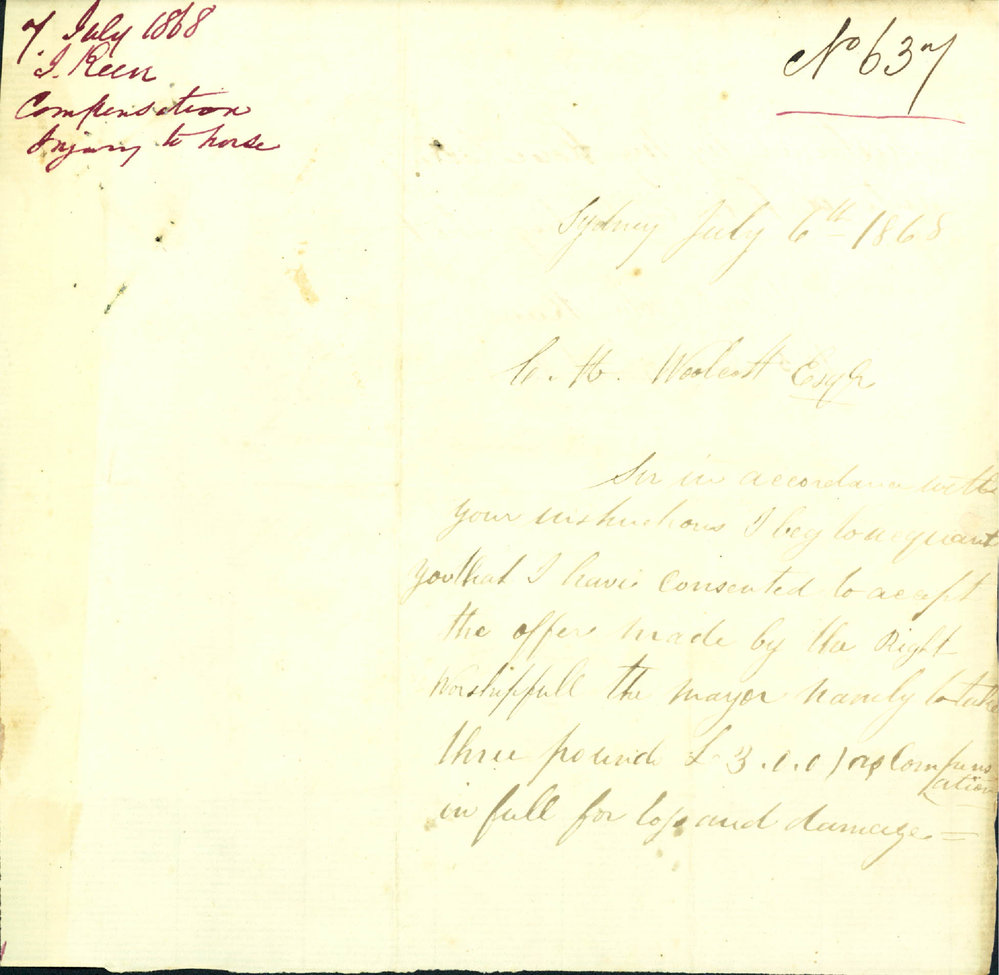 7. July 1868
J. Keen
Compensation
Injury to horse
No 637
Sydney July 6th 1868
C. H. Woolcott Esqr
Sir in accordance with
your instructions I beg to acquant
you that I have consented to accept
the offer made by the Right
Worshipfull the mayor namely to take
three pounds £ 3.0.0) as Compens
ation
in full for loss and damage =